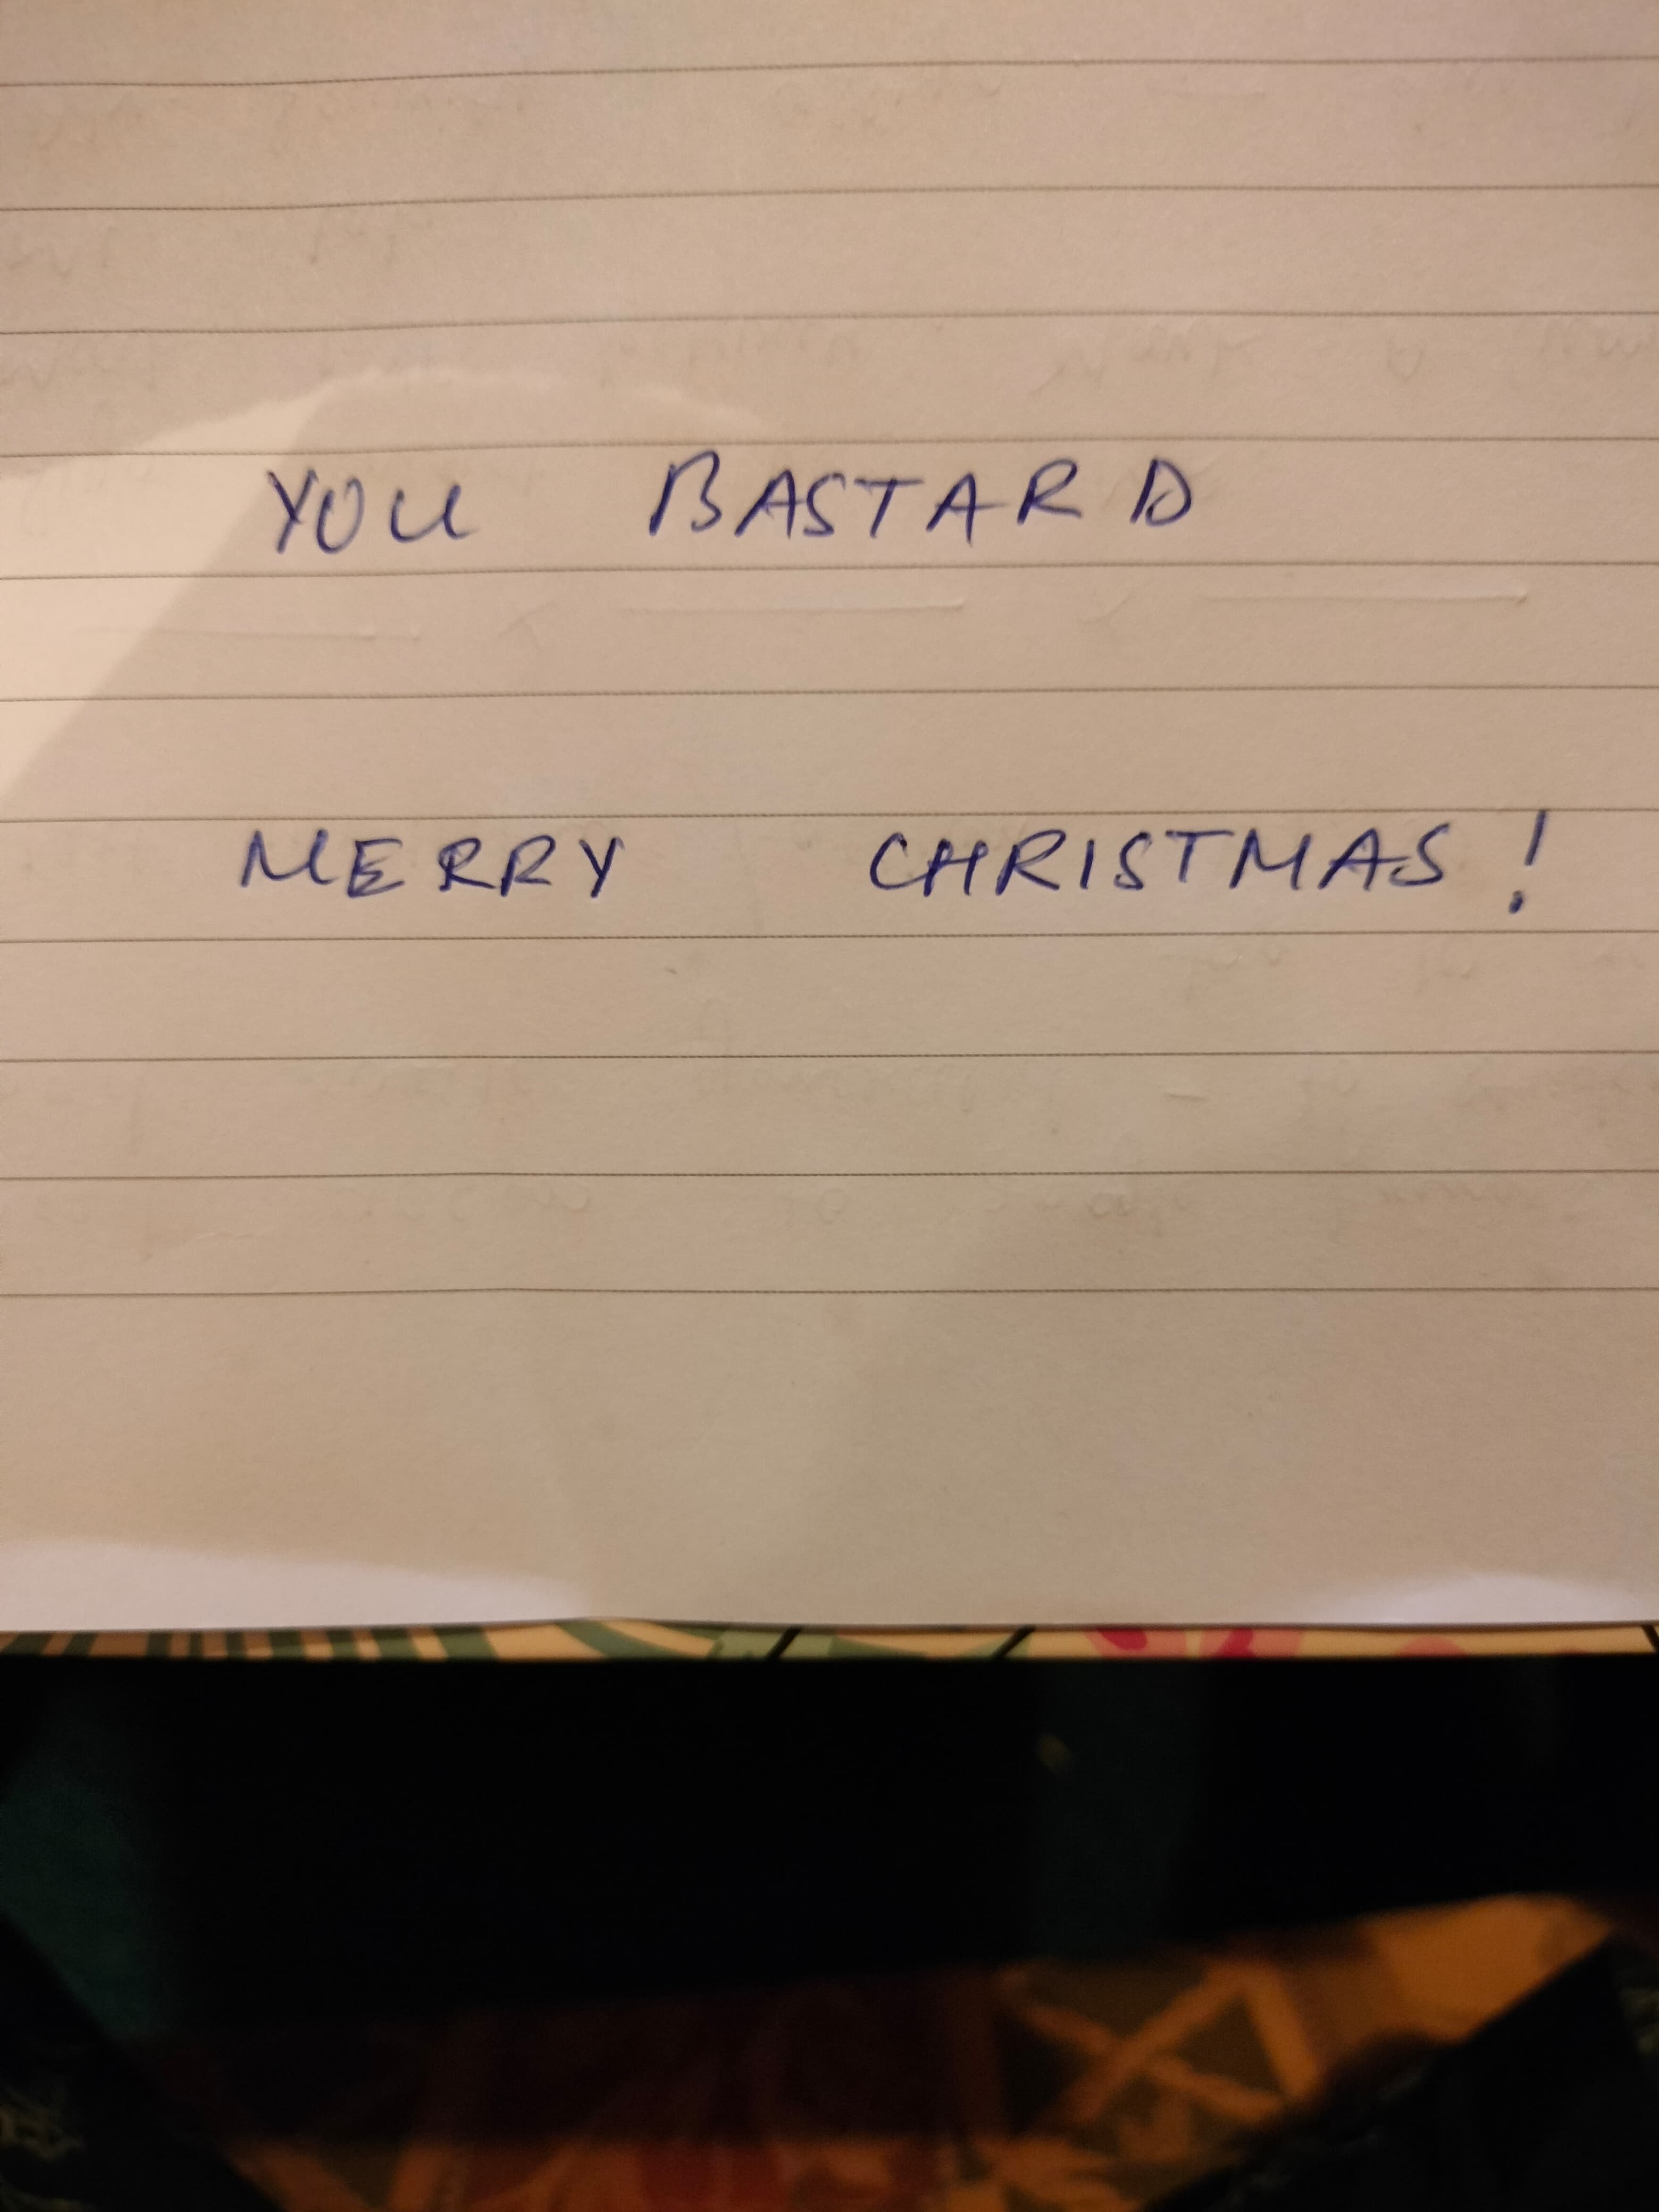 YOU BASTARD
MERRY CHRISTMAS!